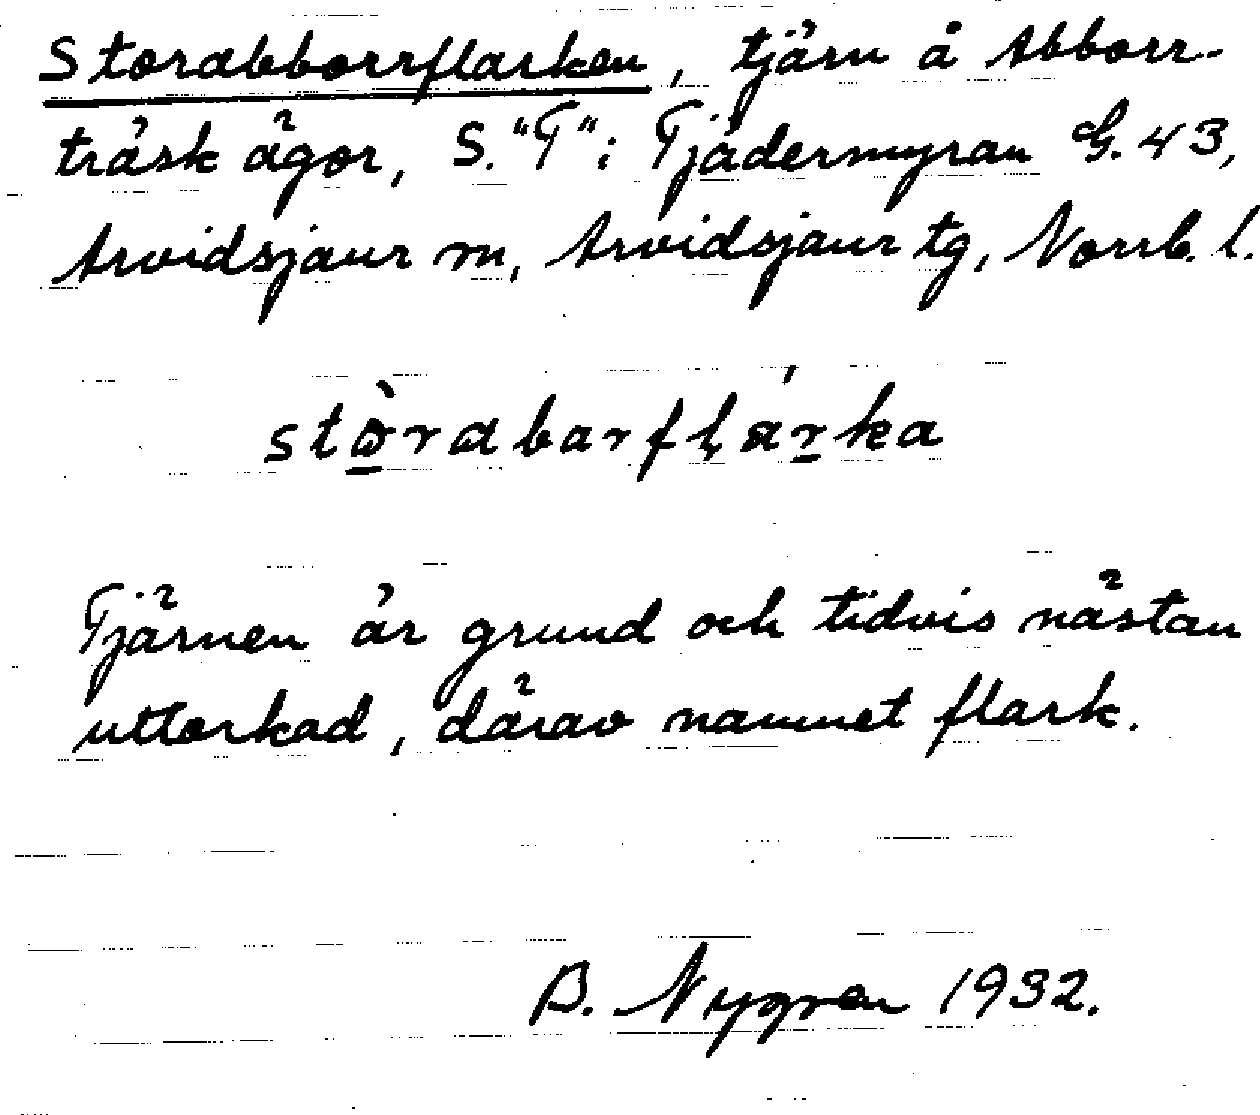 Storabborrflarken, tjärn å Abborr-
träsk ägor, S. "T": Tjädermyran G. 43,
Arvidsjaur sn, Arvidsjaur tg, Norrb. l.
stò̱rabarflá̱rka
Tjärnen är grund och tidvis nästan
uttorkad, därav namnet flark.
B. Nygren 1932.